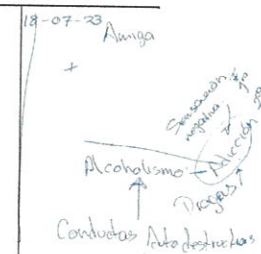 18-07-23
Amiga
+
Sensación
negativa
Alcoholismo - Adicción
Drogas
Conductas Autodestructivas